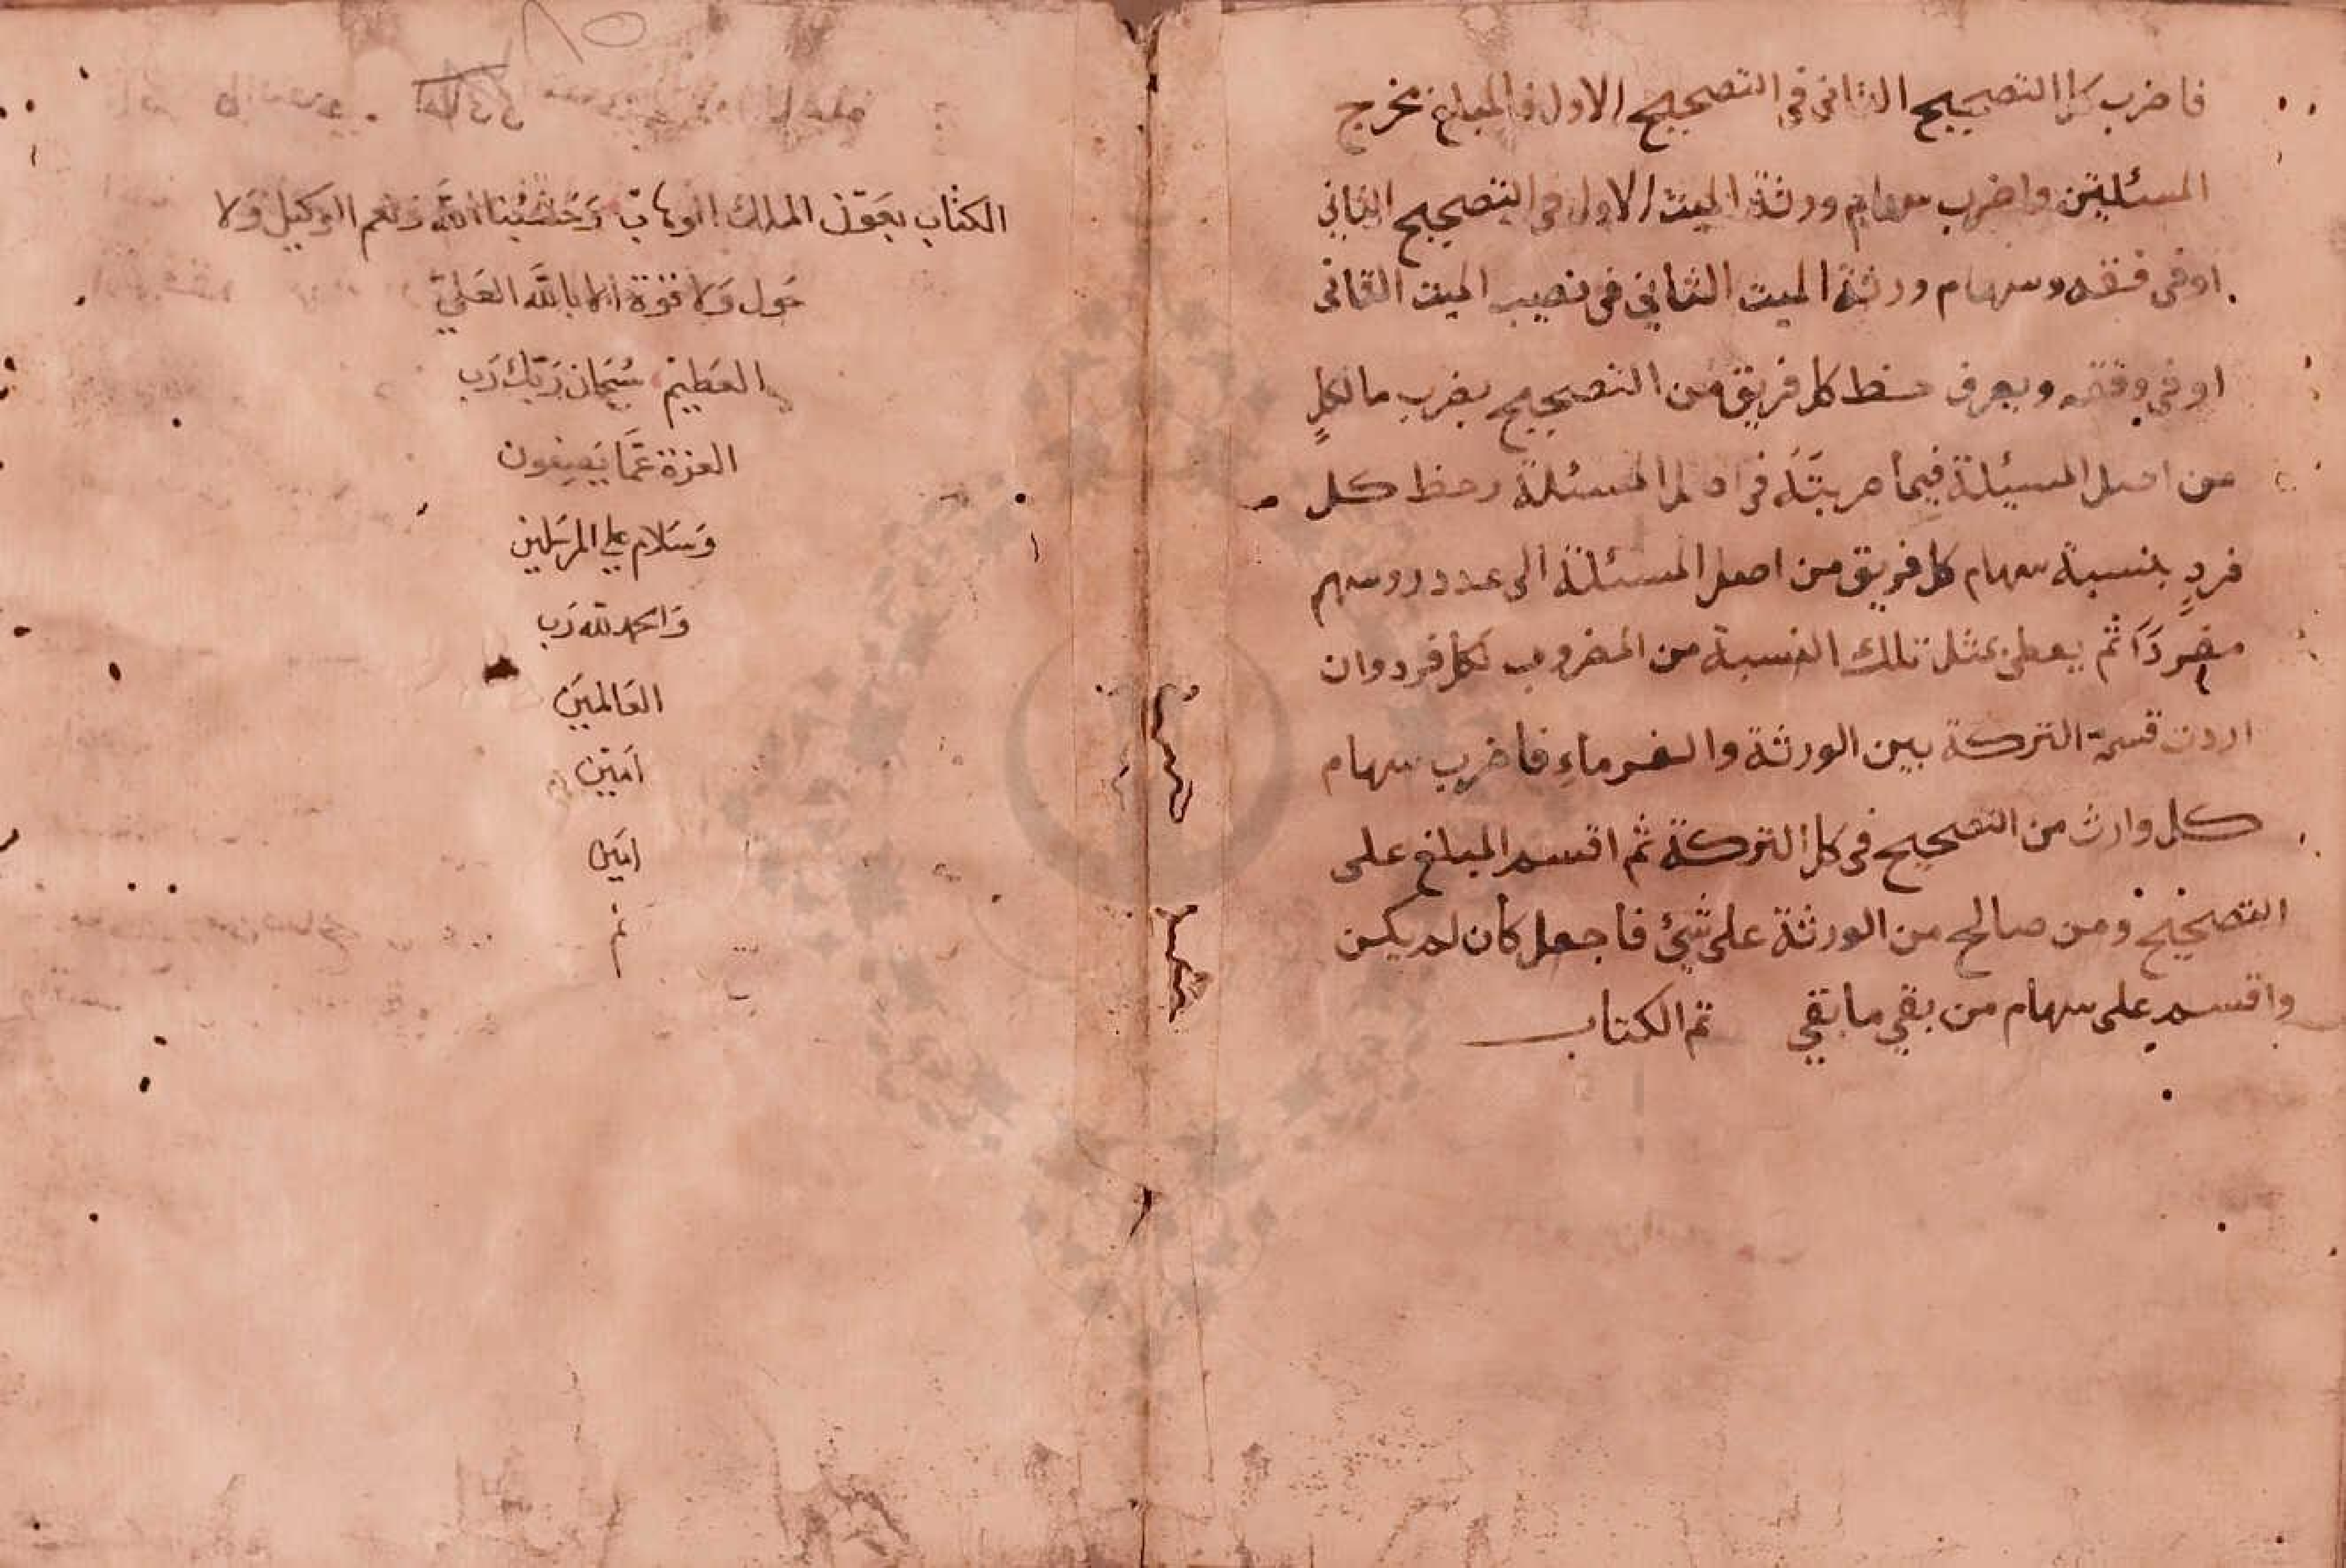 فاضرب كل التصحيح الثانى فى التصحيح الاول فالمبلغ مخرج
المسئلتين واضرب سهام ورثة الميت الاول فى التصحيح الثاني
او فى فقه وسهام ورثة الميت الثاني فى نصيب الميت الثانى
او في وفقه ويعرف حظ كل فريق من التصحيح بضرب ما لكلٍ
من اصل المسئلة فيما ضربته فى المسئلة وحظ كل
فردٍ بنسبة سهام كل فريق من اصل المسئلة الى عدد روسهم
مفردًا ثم يعطى بمثل تلك النسبة من المضروب لكل فرد وان
اردت قسمة التركة بين الورثة والغرماءِ فاضرب سهام
كل وارث من التصحيح فى كل التركة ثم اقسم المبلغ على
التصحيح ومن صالح من الورثة على شئ فاجعل كان لم يكن
واقسم على سهام من بقي ما بقي تم الكتاب
الكتاب بعون الملك الوهاب وَحَسْبُنا اللَّه ونعم الوكيل وَلا
حَول وَلا قوة الا باللَّه العَلي
العَظيم سُبحان رَبك رَب
العزة عَمَّا يَصِفون
وَسَلام على المرسَلين
وَالحمد لله رَب
العَالمين
امَين
امَين
تم